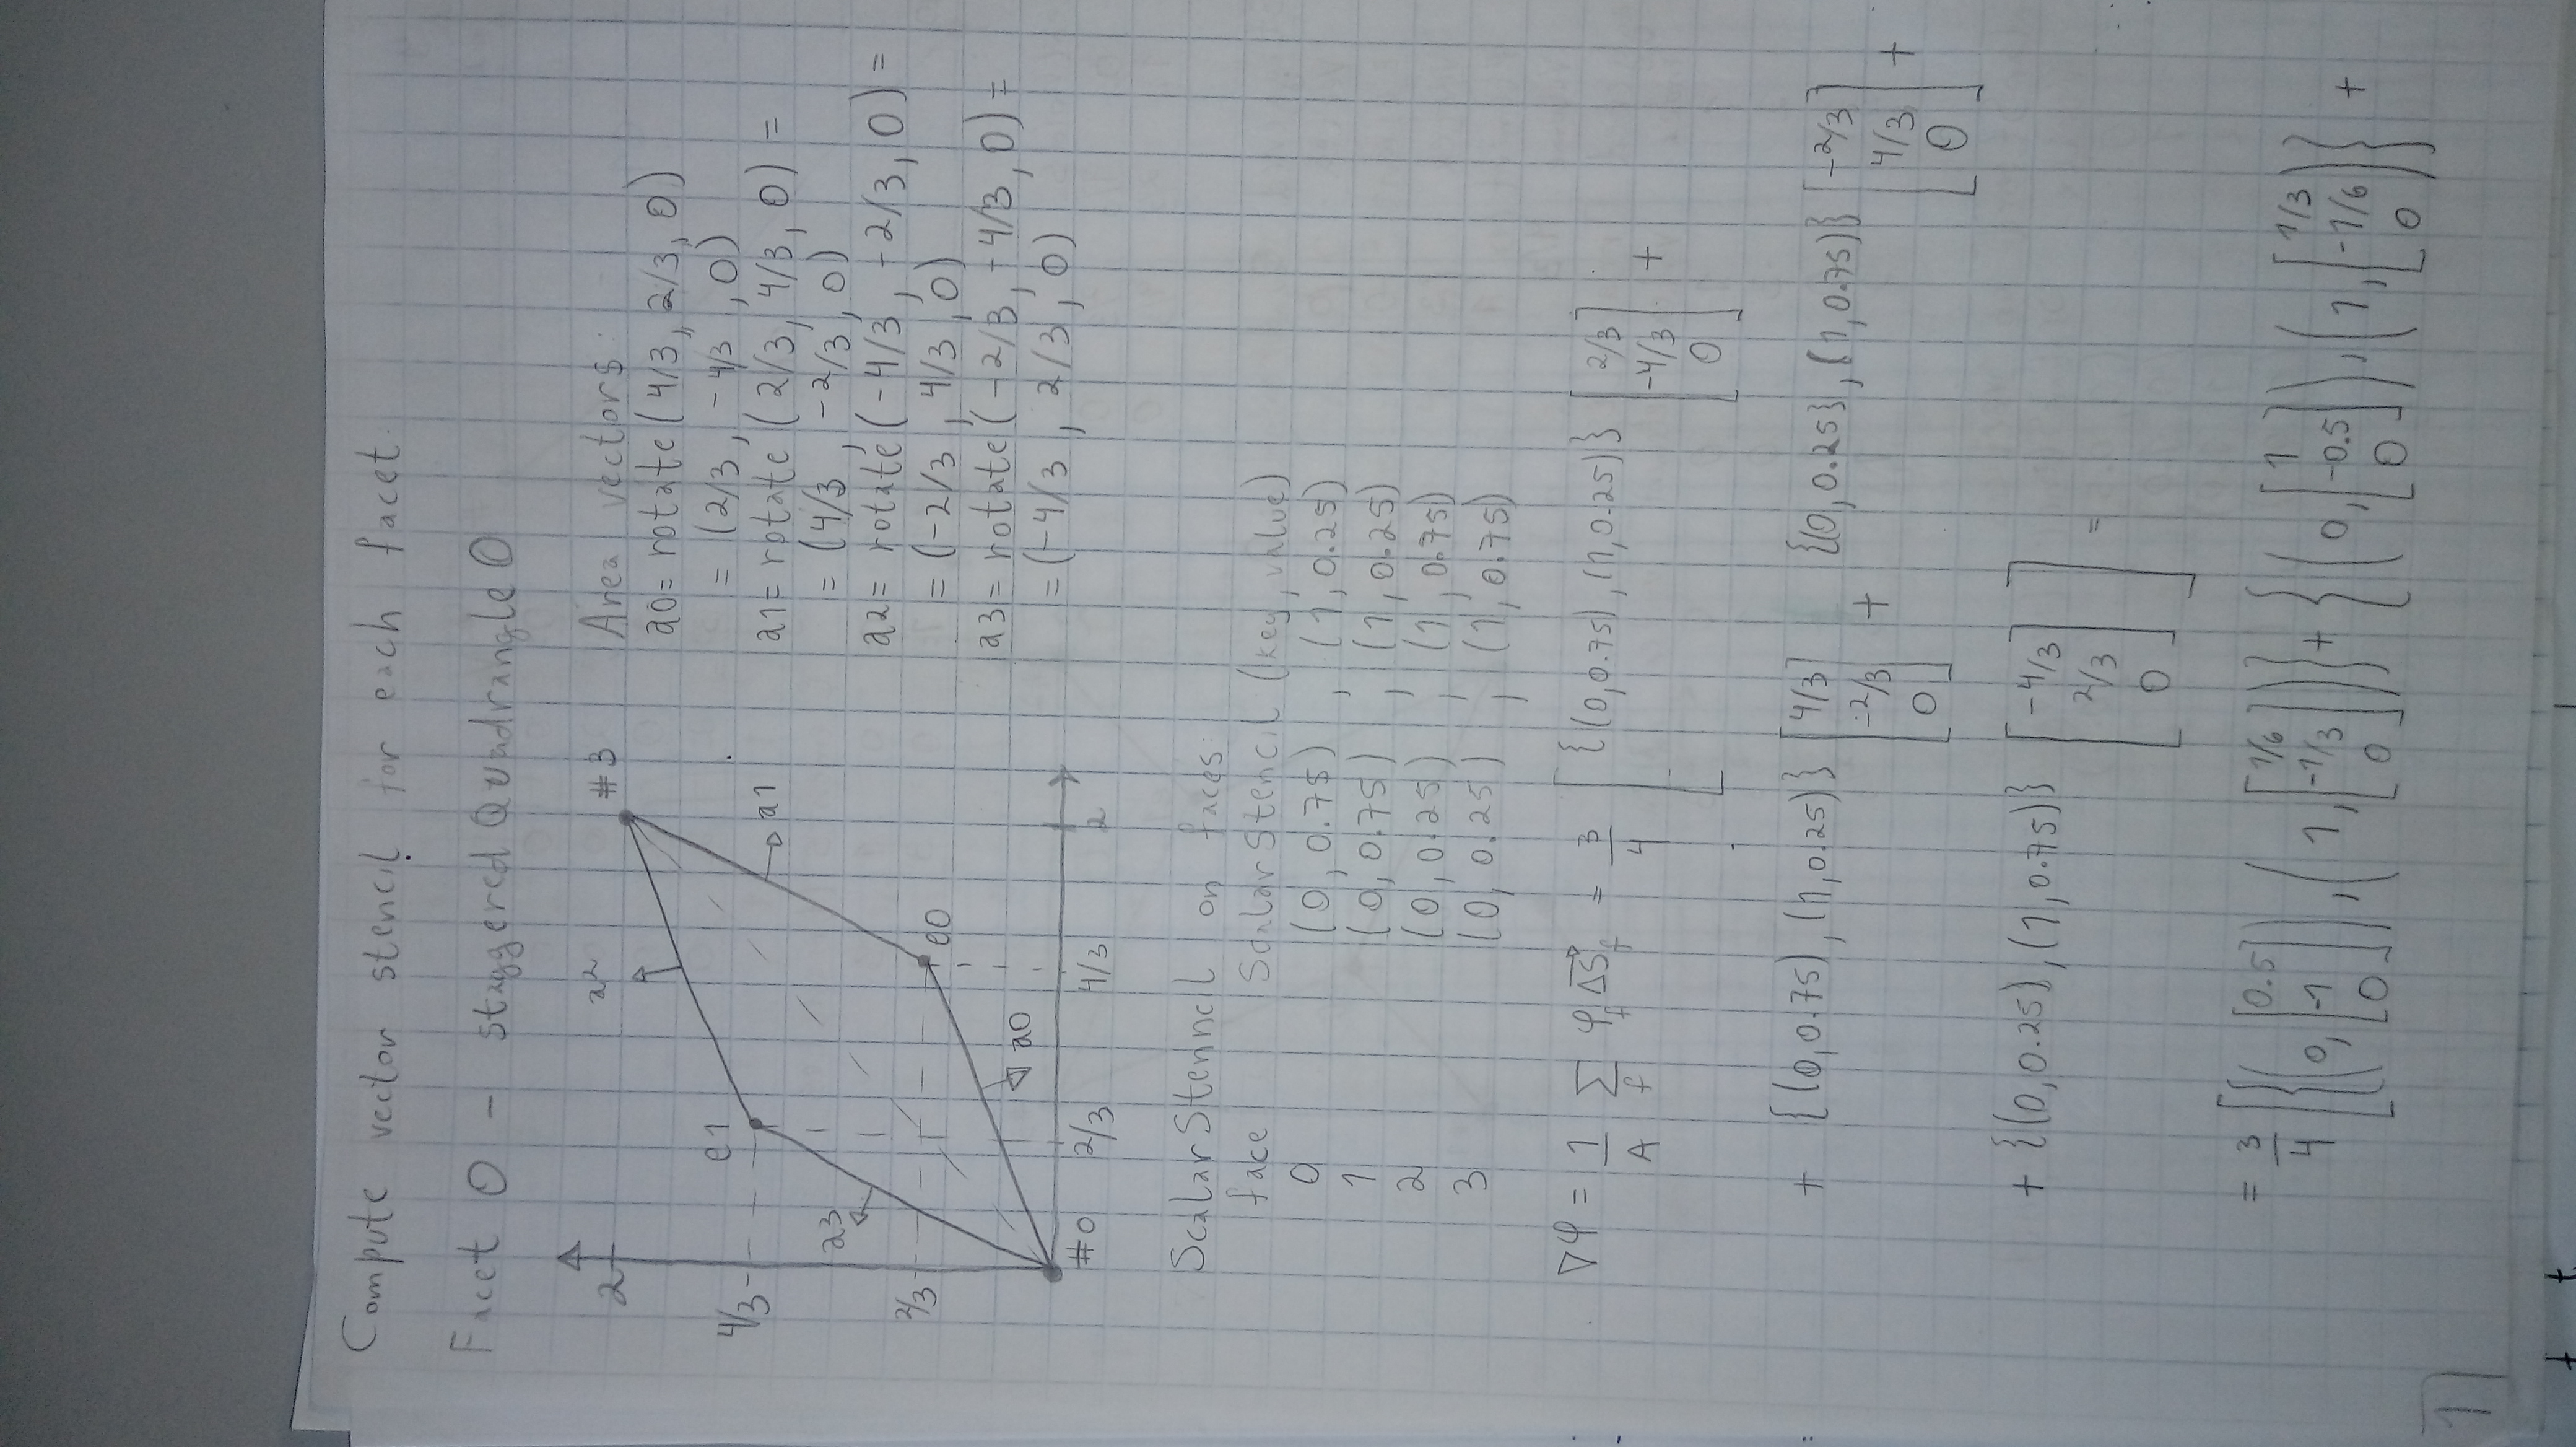 Compute vector stencil for each facet.
Facet 0 - staggered Quadrangle 0
2
a2
#3
e1
4/3
a1
a3
2/3
e0
a0
#0
2/3
4/3
2
Area vectors:
a0 = rotate (4/3, 2/3, 0)
= (2/3, -4/3, 0)
a1 = rotate (2/3, 4/3, 0) =
= (4/3, -2/3, 0)
a2 = rotate (-4/3, -2/3, 0) =
= (-2/3, 4/3, 0)
a3 = rotate (-2/3, -4/3, 0) =
= (-4/3, 2/3, 0)
Scalar Stenncil on faces:
face Scalar Stencil (key, value)
0 (0, 0.75), (1, 0.25)
1 (0, 0.75), (1, 0.25)
2 (0, 0.25), (1, 0.75)
3 (0, 0.25), (1, 0.75)
∇φ = 1/A ∑_f φ_f ΔS⃗_f = 3/4 [ {(0, 0.75), (1, 0.25)} [2/3 -4/3 0] +
+ {(0, 0.75), (1, 0.25)} [4/3 -2/3 0] + {(0, 0.25), (1, 0.75)} [-2/3 4/3 0] +
+ {(0, 0.25), (1, 0.75)} [-4/3 2/3 0] ] =
= 3/4 [ {(0, [0.5 -1 0]), (1, [1/6 -1/3 0])} + {(0, [1 -0.5 0]), (1, [1/3 -1/6 0])} +
1